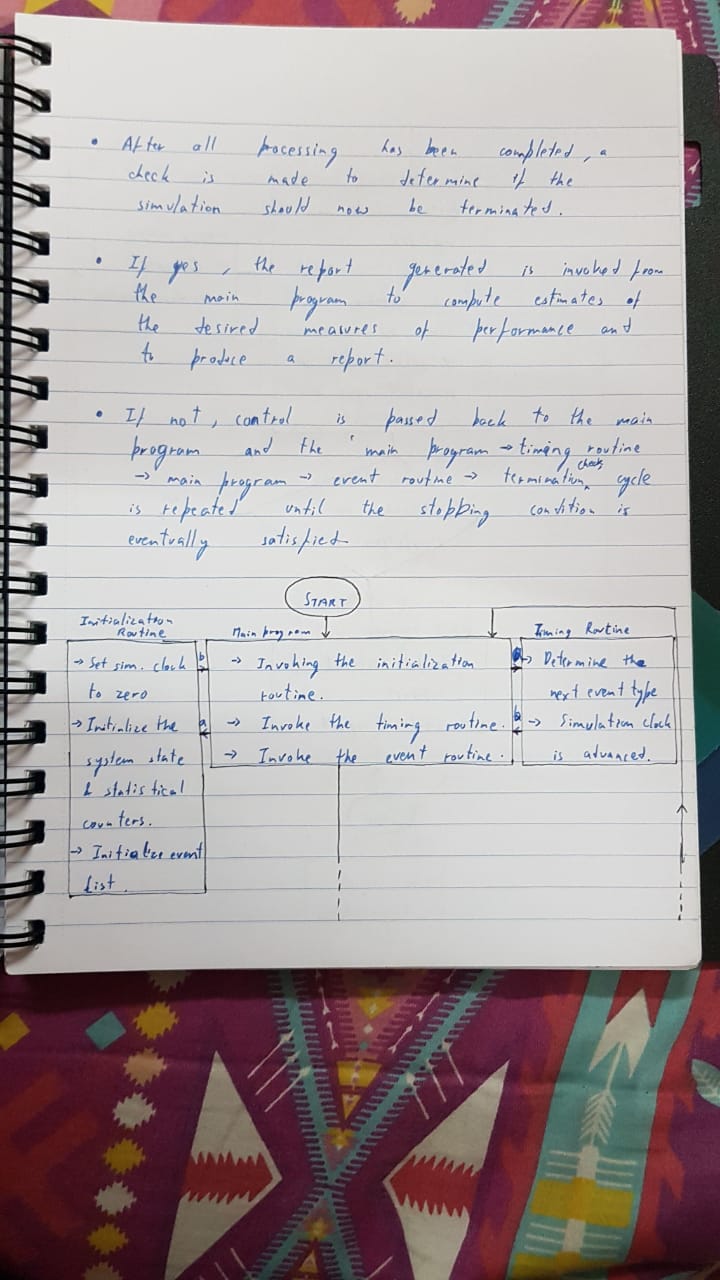 • After all processing has been completed, a
check is made to determine if the
simulation should now be terminated.
• If yes, the report generated is invoked from
the main program to compute estimates of
the desired measures of performance and
to produce a report.
• If not, control is passed back to the main
program and the 'main program → timing routine
→ main program → event routine → termination check cycle
is repeated until the stopping condition is
eventually satisfied
START
Initialization
Routine
→ Set sim. clock
to zero
→ Initialize the
system state
& statistical
counters.
→ Initialize event
list.
Main program
→ Invoking the initialization
routine.
→ Invoke the timing routine.
→ Invoke the event routine.
b
a
Timing Routine
→ Determine the
next event type
→ Simulation clock
is advanced.
b